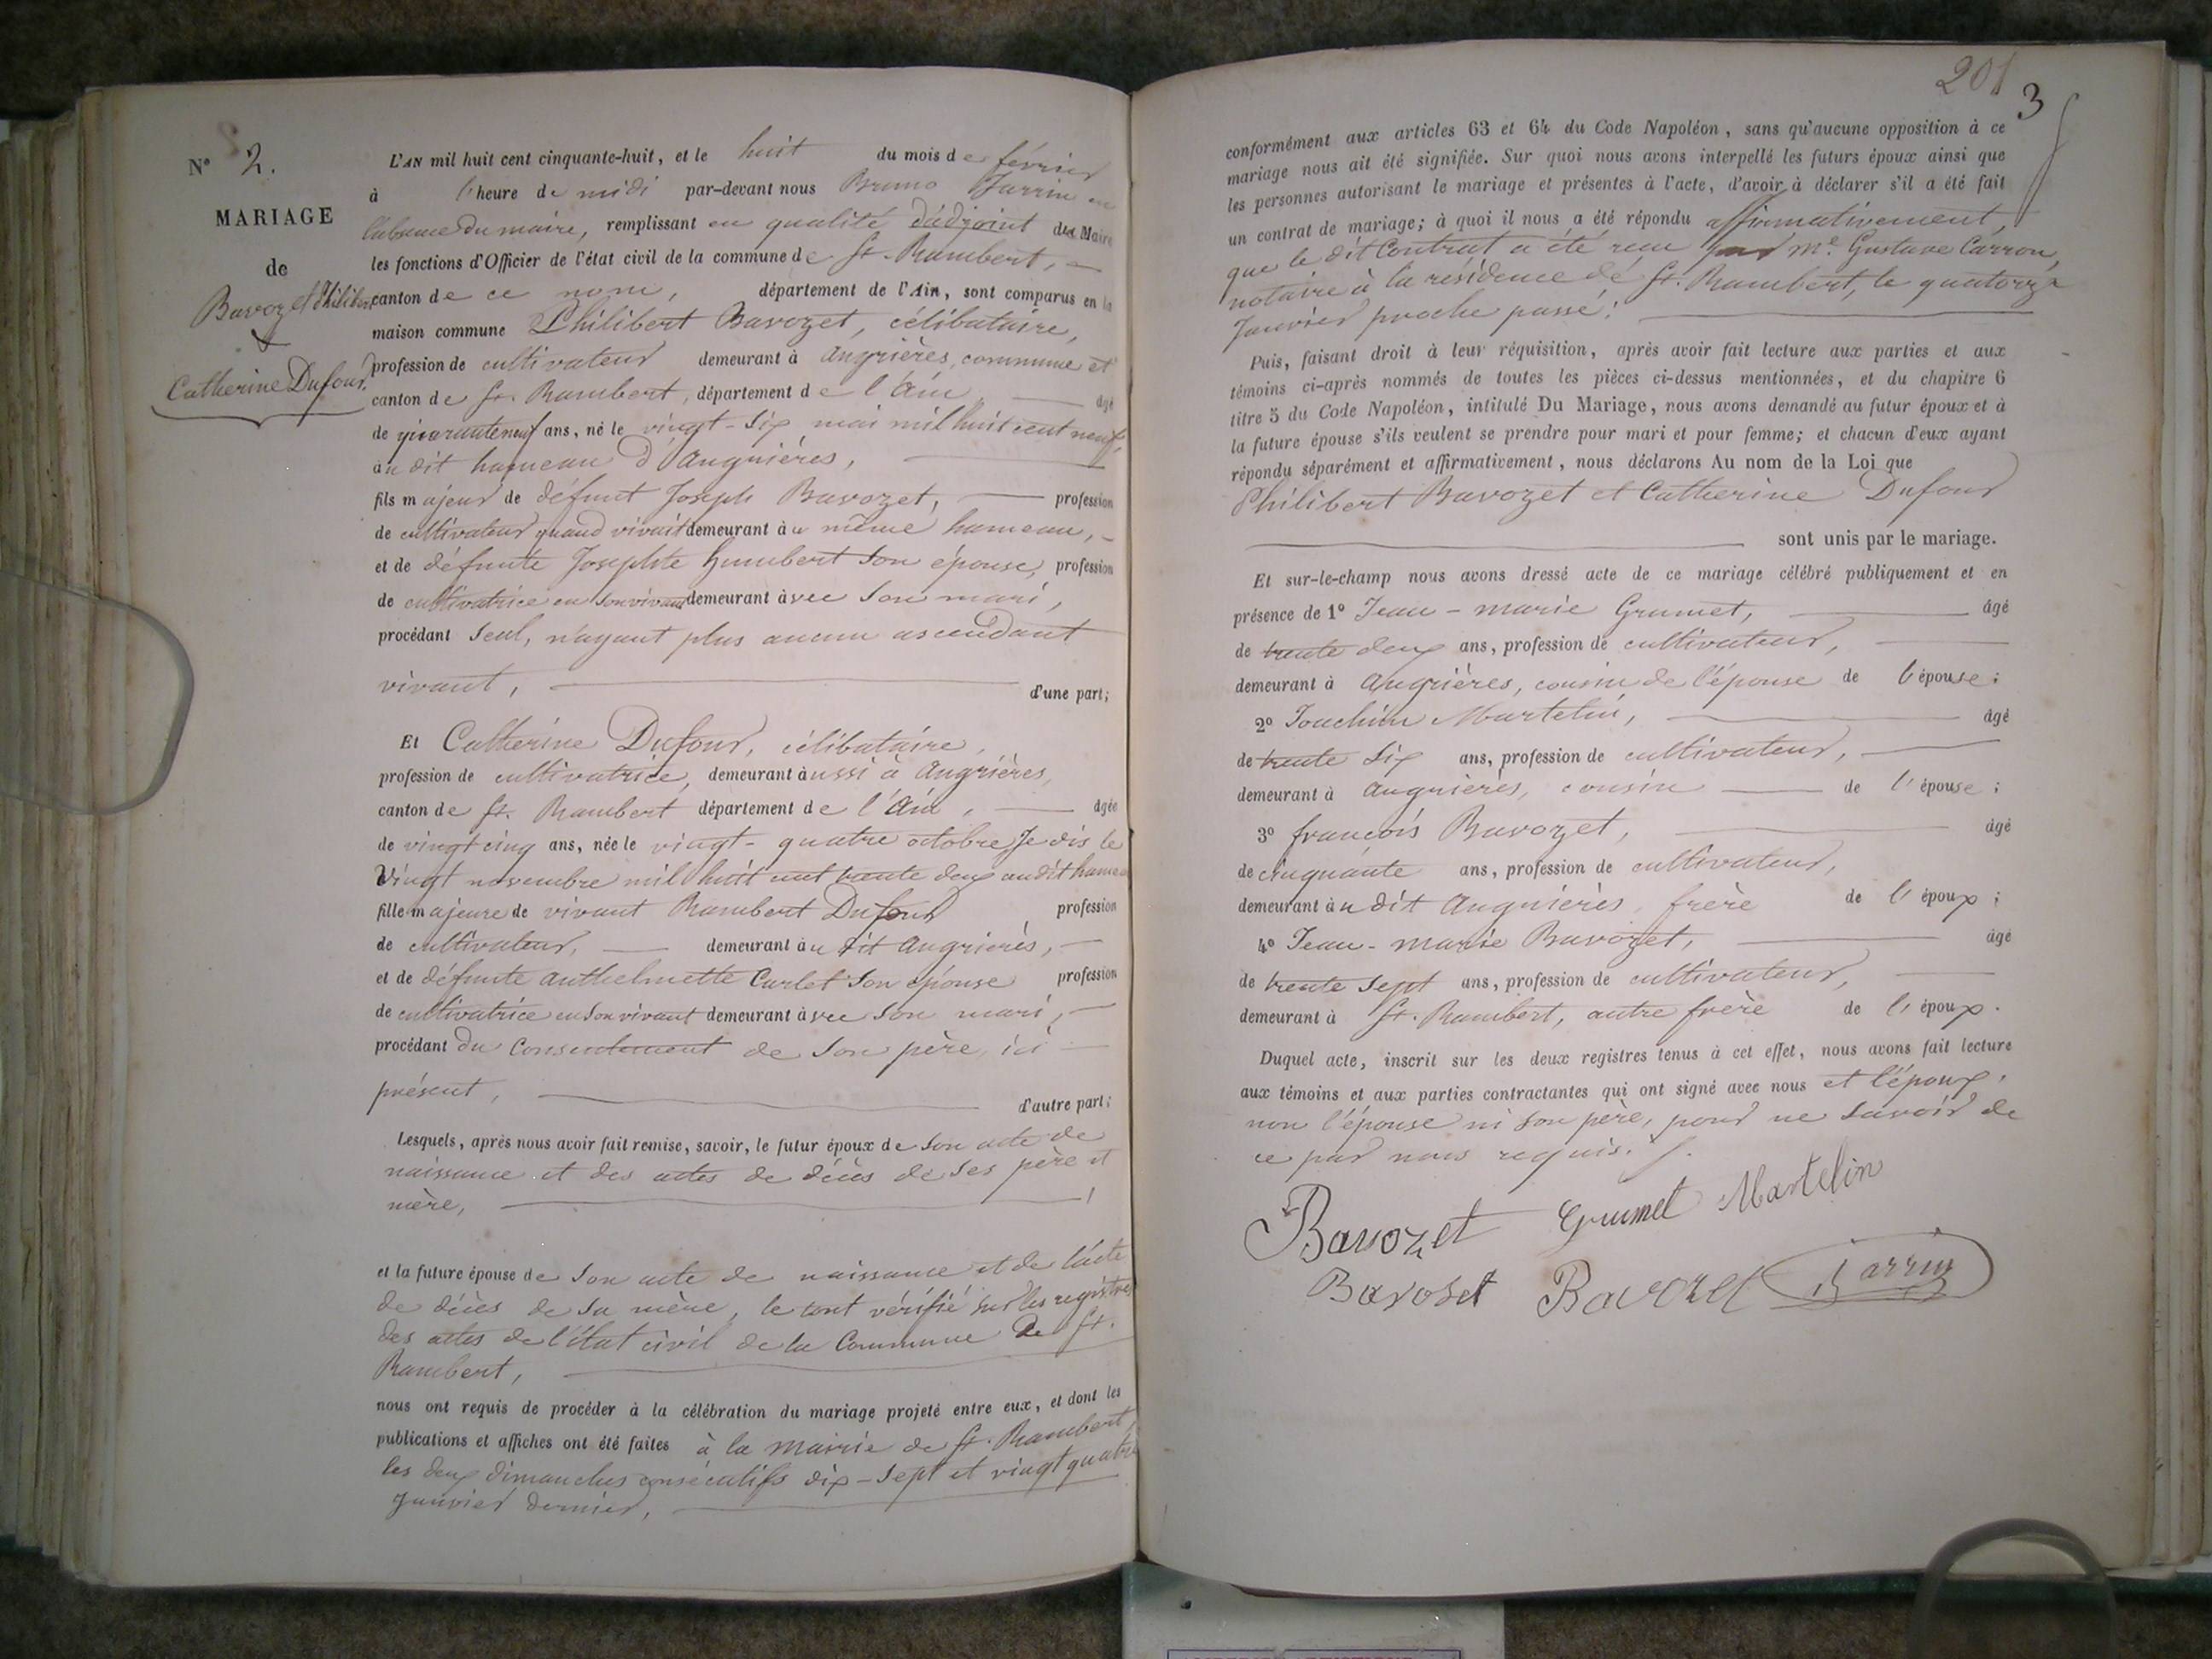 N° 2.
MARIAGE
de
Bavozet Philibert
&
Catherine Dufour.
L'AN mil huit cent cinquante-huit, et le huit du mois de février
à l'heure de midi par-devant nous Bruno Jarrin en
l'absence du maire, remplissant en qualité d'adjoint du Maire
les fonctions d'Officier de l'état civil de la commune de St. Rambert,
canton de ce nom, département de l'Ain, sont comparus en la
maison commune Philibert Bavozet, célibataire,
profession de cultivateur demeurant à Angrières, commune et
canton de St. Rambert, département de l'Ain âgé
de quaranteneuf ans, né le vingt-six mai mil huit cent neuf,
au dit hameau d'Angrières,
fils majeur de défunt Joseph Bavozet, profession
de cultivateur quand vivait demeurant au même hameau,
et de défunte Josephte humbert son épouse, profession
de cultivatrice en son vivant demeurant avec son mari,
procédant seul, n'ayant plus aucun ascendant
vivant, d'une part;
Et Catherine Dufour, célibataire,
profession de cultivatrice, demeurant aussi à Angrières,
canton de St. Rambert département de l'Ain, âgée
de vingt cinq ans, née le vingt-quatre octobre Je dis le
Vingt novembre mil huit cent trente deux audit hameau
fille majeure de vivant Rambert Dufour profession
de cultivateur, demeurant au dit Angrières,
et de défunte anthelmette Curlet son épouse profession
de cultivatrice en son vivant demeurant avec son mari,
procédant du Consentement de son père, ici
présent, d'autre part;
Lesquels, après nous avoir fait remise, savoir, le futur époux de son acte de
naissance et des actes de décès de ses père et
mère,
et la future épouse de son acte de naissance et de l'acte
de décès de sa mère, le tout vérifié sur les registres
des actes de l'état civil de la Commune De St.
Rambert,
nous ont requis de procéder à la célébration du mariage projeté entre eux, et dont les
publications et affiches ont été faites à la mairie de St. Rambert,
les deux dimanches consécutifs dix-sept et vingt quatre
Janvier dernier,
201
3
conformément aux articles 63 et 64 du Code Napoléon, sans qu'aucune opposition à ce
mariage nous ait été signifiée. Sur quoi nous avons interpellé les futurs époux ainsi que
les personnes autorisant le mariage et présentes à l'acte, d'avoir à déclarer s'il a été fait
un contrat de mariage; à quoi il nous a été répondu affirmativement,
que le dit Contrat a été reçu par Me. Gustave Carron,
notaire à la résidence de St. Rambert, le quatorze
Janvier proche passé.
Puis, faisant droit à leur réquisition, après avoir fait lecture aux parties et aux
témoins ci-après nommés de toutes les pièces ci-dessus mentionnées, et du chapitre 6
titre 5 du Code Napoléon, intitulé Du Mariage, nous avons demandé au futur époux et à
la future épouse s'ils veulent se prendre pour mari et pour femme; et chacun d'eux ayant
répondu séparément et affirmativement, nous déclarons Au nom de la Loi que
Philibert Bavozet et Catherine Dufour
sont unis par le mariage.
Et sur-le-champ nous avons dressé acte de ce mariage célébré publiquement et en
présence de 1° Jean-marie Grumet, âgé
de trente deux ans, profession de cultivateur,
demeurant à Angrières, cousin de l'épouse de l'épouse;
2° Jouchim Martelin, âgé
de trente six ans, profession de cultivateur,
demeurant à Angrières, cousin de l'épouse;
3° françois Bavozet, âgé
de cinquante ans, profession de cultivateur,
demeurant au dit Angrières, frère de l'époux;
4° Jean-marie Bavozet, âgé
de trente sept ans, profession de cultivateur,
demeurant à St. Rambert, autre frère de l'époux.
Duquel acte, inscrit sur les deux registres tenus à cet effet, nous avons fait lecture
aux témoins et aux parties contractantes qui ont signé avec nous et l'époux,
non l'épouse ni son père, pour ne savoir de
ce par nous requis.
Bavozet Grumet Martelin
Bavoset Bavozet Jarrin